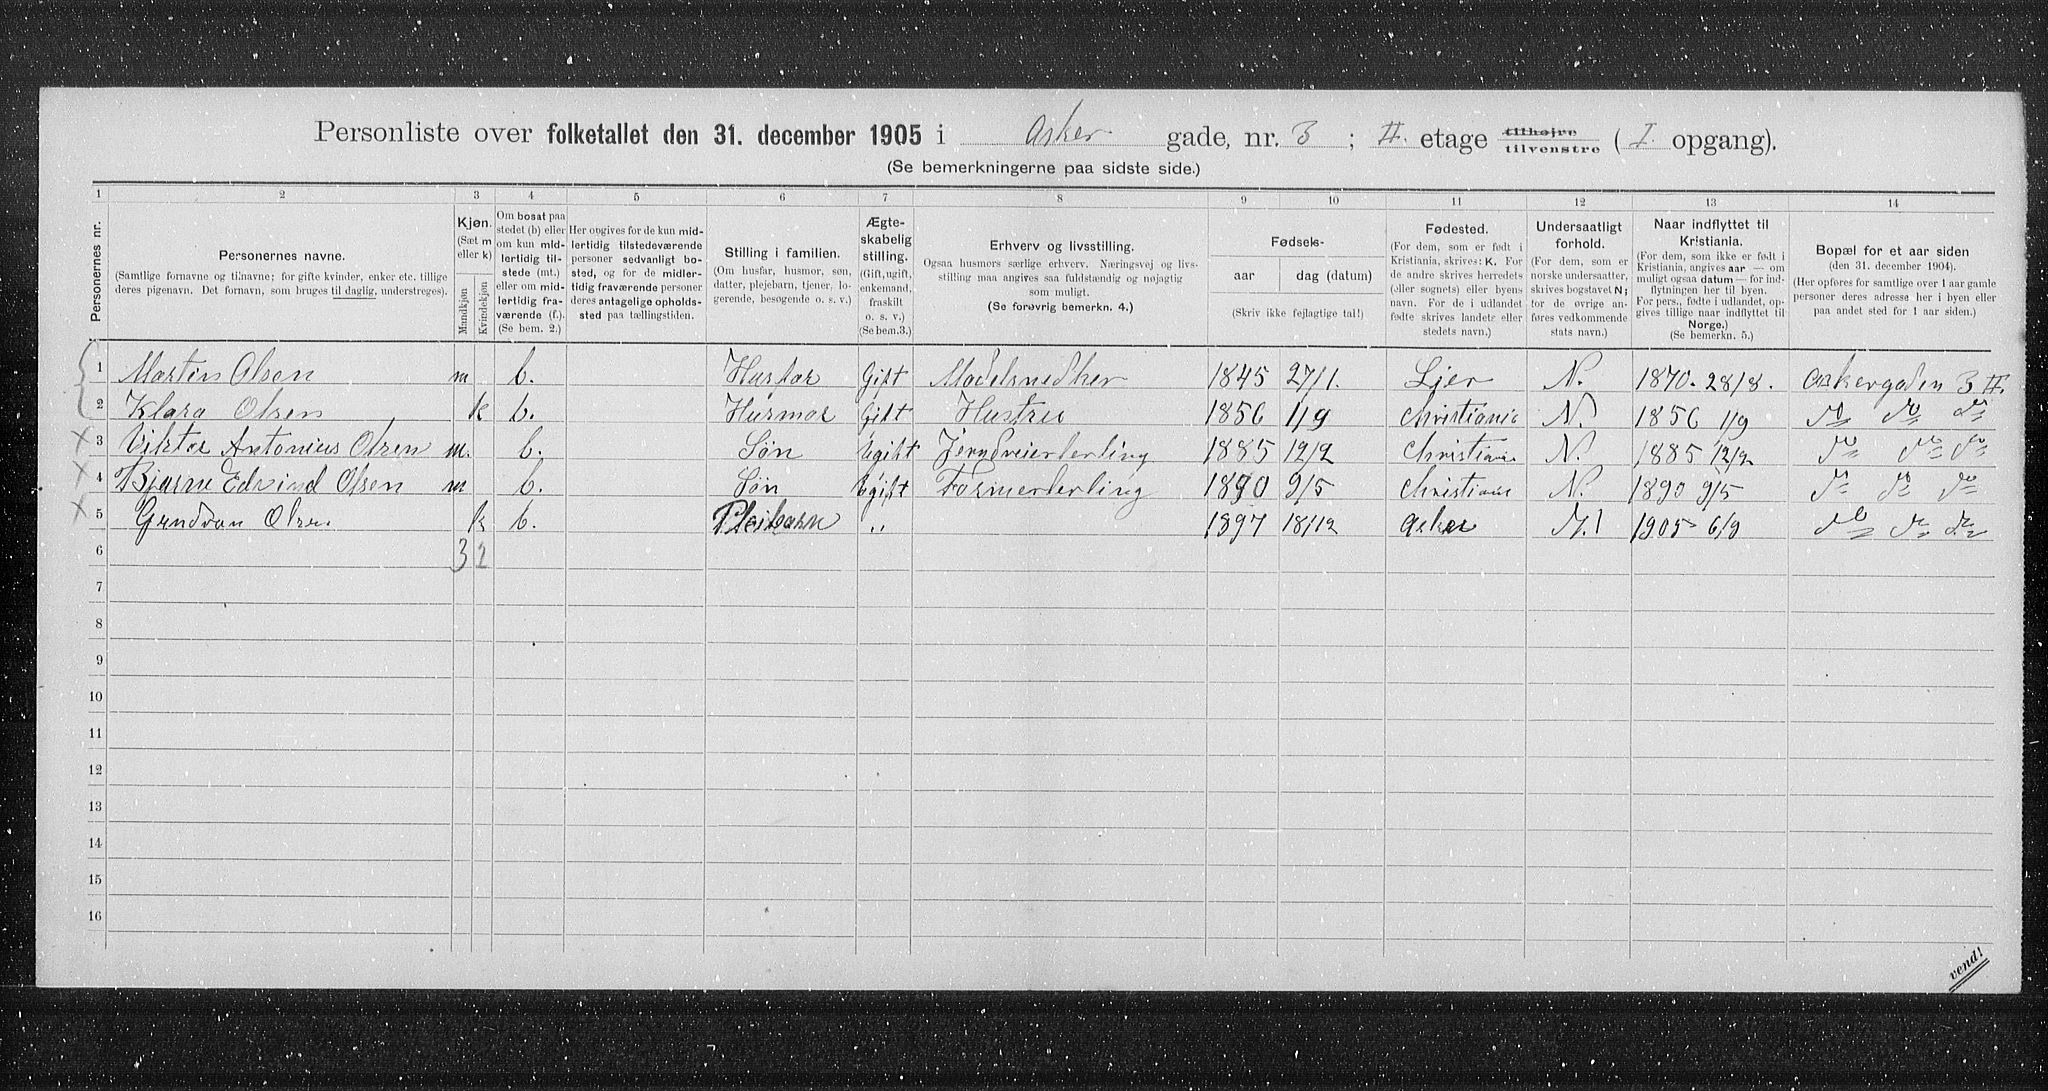 Personliste over folketallet den 31. december 1905 i Asker gade, nr. 3 ; II. etage tilhøjre tilvenstre ( I. opgang).
(Se bemerkningerne paa sidste side.)
1 2 3 4 5 6 7 8 9 10 11 12 13 14
Personernes nr.
Personernes navne.
(Samtlige fornavne og tilnavne; for gifte kvinder, enker etc. tillige
deres pigenavn. Det fornavn, som bruges til daglig, understreges).
Kjøn.
(Sæt m
eller k)
Mandkjøn
Kvindekjøn
Om bosat paa
stedet (b) eller
om kun mid-
lertidig til-
stede (mt.)
eller om mid-
lertidig fra-
værende (f.).
(Se bem. 2.)
Her opgives for de kun mid-
lertidig tilstedeværende
personer sedvanligt bo-
sted, og for de midler-
tidig fraværende personer
deres antagelige opholds-
sted paa tællingstiden.
Stilling i familien.
(Om husfar, husmor, søn,
datter, plejebarn, tjener, lo-
gerende, besøgende o. s. v.)
Ægte-
skabelig
stilling.
(Gift, ugift,
enkemand,
fraskilt
o. s. v.)
(Se bem.3.)
Erhverv og livsstilling.
Ogsaa husmors særlige erhverv. Næringsvej og livs-
stilling maa angives saa fuldstændig og nøjagtig
som muligt.
(Se forøvrig bemerkn. 4.)
Fødsels-
aar dag (datum)
(Skriv ikke fejlagtige tal!)
Fødested.
(For dem, som er født i
Kristiania, skrives: K. For
de andre skrives herredets
(eller sognets) eller byens
navn. For de i udlandet
fødte skrives landets eller
stedets navn.)
Undersaatligt
forhold.
(For dem, som er
norske undersaatter,
skrives bogstavet N;
for de øvrige an-
føres vedkommende
stats navn.)
Naar indflyttet til
Kristiania.
(For dem, som ikke er født i
Kristiania, angives aar — om
muligt ogsaa datum — for ind-
flytningen her til byen.
For pers., fødte i udlandet, op-
gives tillige naar indflyttet til
Norge.)
(Se bemerkn. 5.)
Bopæl for et aar siden
(den 31. december 1904).
(Her opføres for samtlige over 1 aar gamle
personer deres adresse her i byen eller
paa andet sted for 1 aar siden.)
1 Martin Olsen m b. Husfar Gift Modelsnedker 1845 27/1. Lier N. 1870. 28/8. Askergaden 3 II.
2 Klara Olsen k b. Husmor Gift Hustru 1856 1/9 Christiania N. 1856 1/9 do do do
3 Viktor Antonius Olsen m. b. Søn Ugift 1885 12/2 Christiania N. 1885 12/2 do do do
4 Bjarne Edvind Olsen m b. Søn Ugift Formerlerling 1890 9/5 Christiania N. 1890 9/5 do do do
5 Olsen. k b. Pleibarn „ 1897 18/12 Asker N. 1905 6/9 do do do
6 3 2
7
8
9
10
11
12
13
14
15
16
vend!